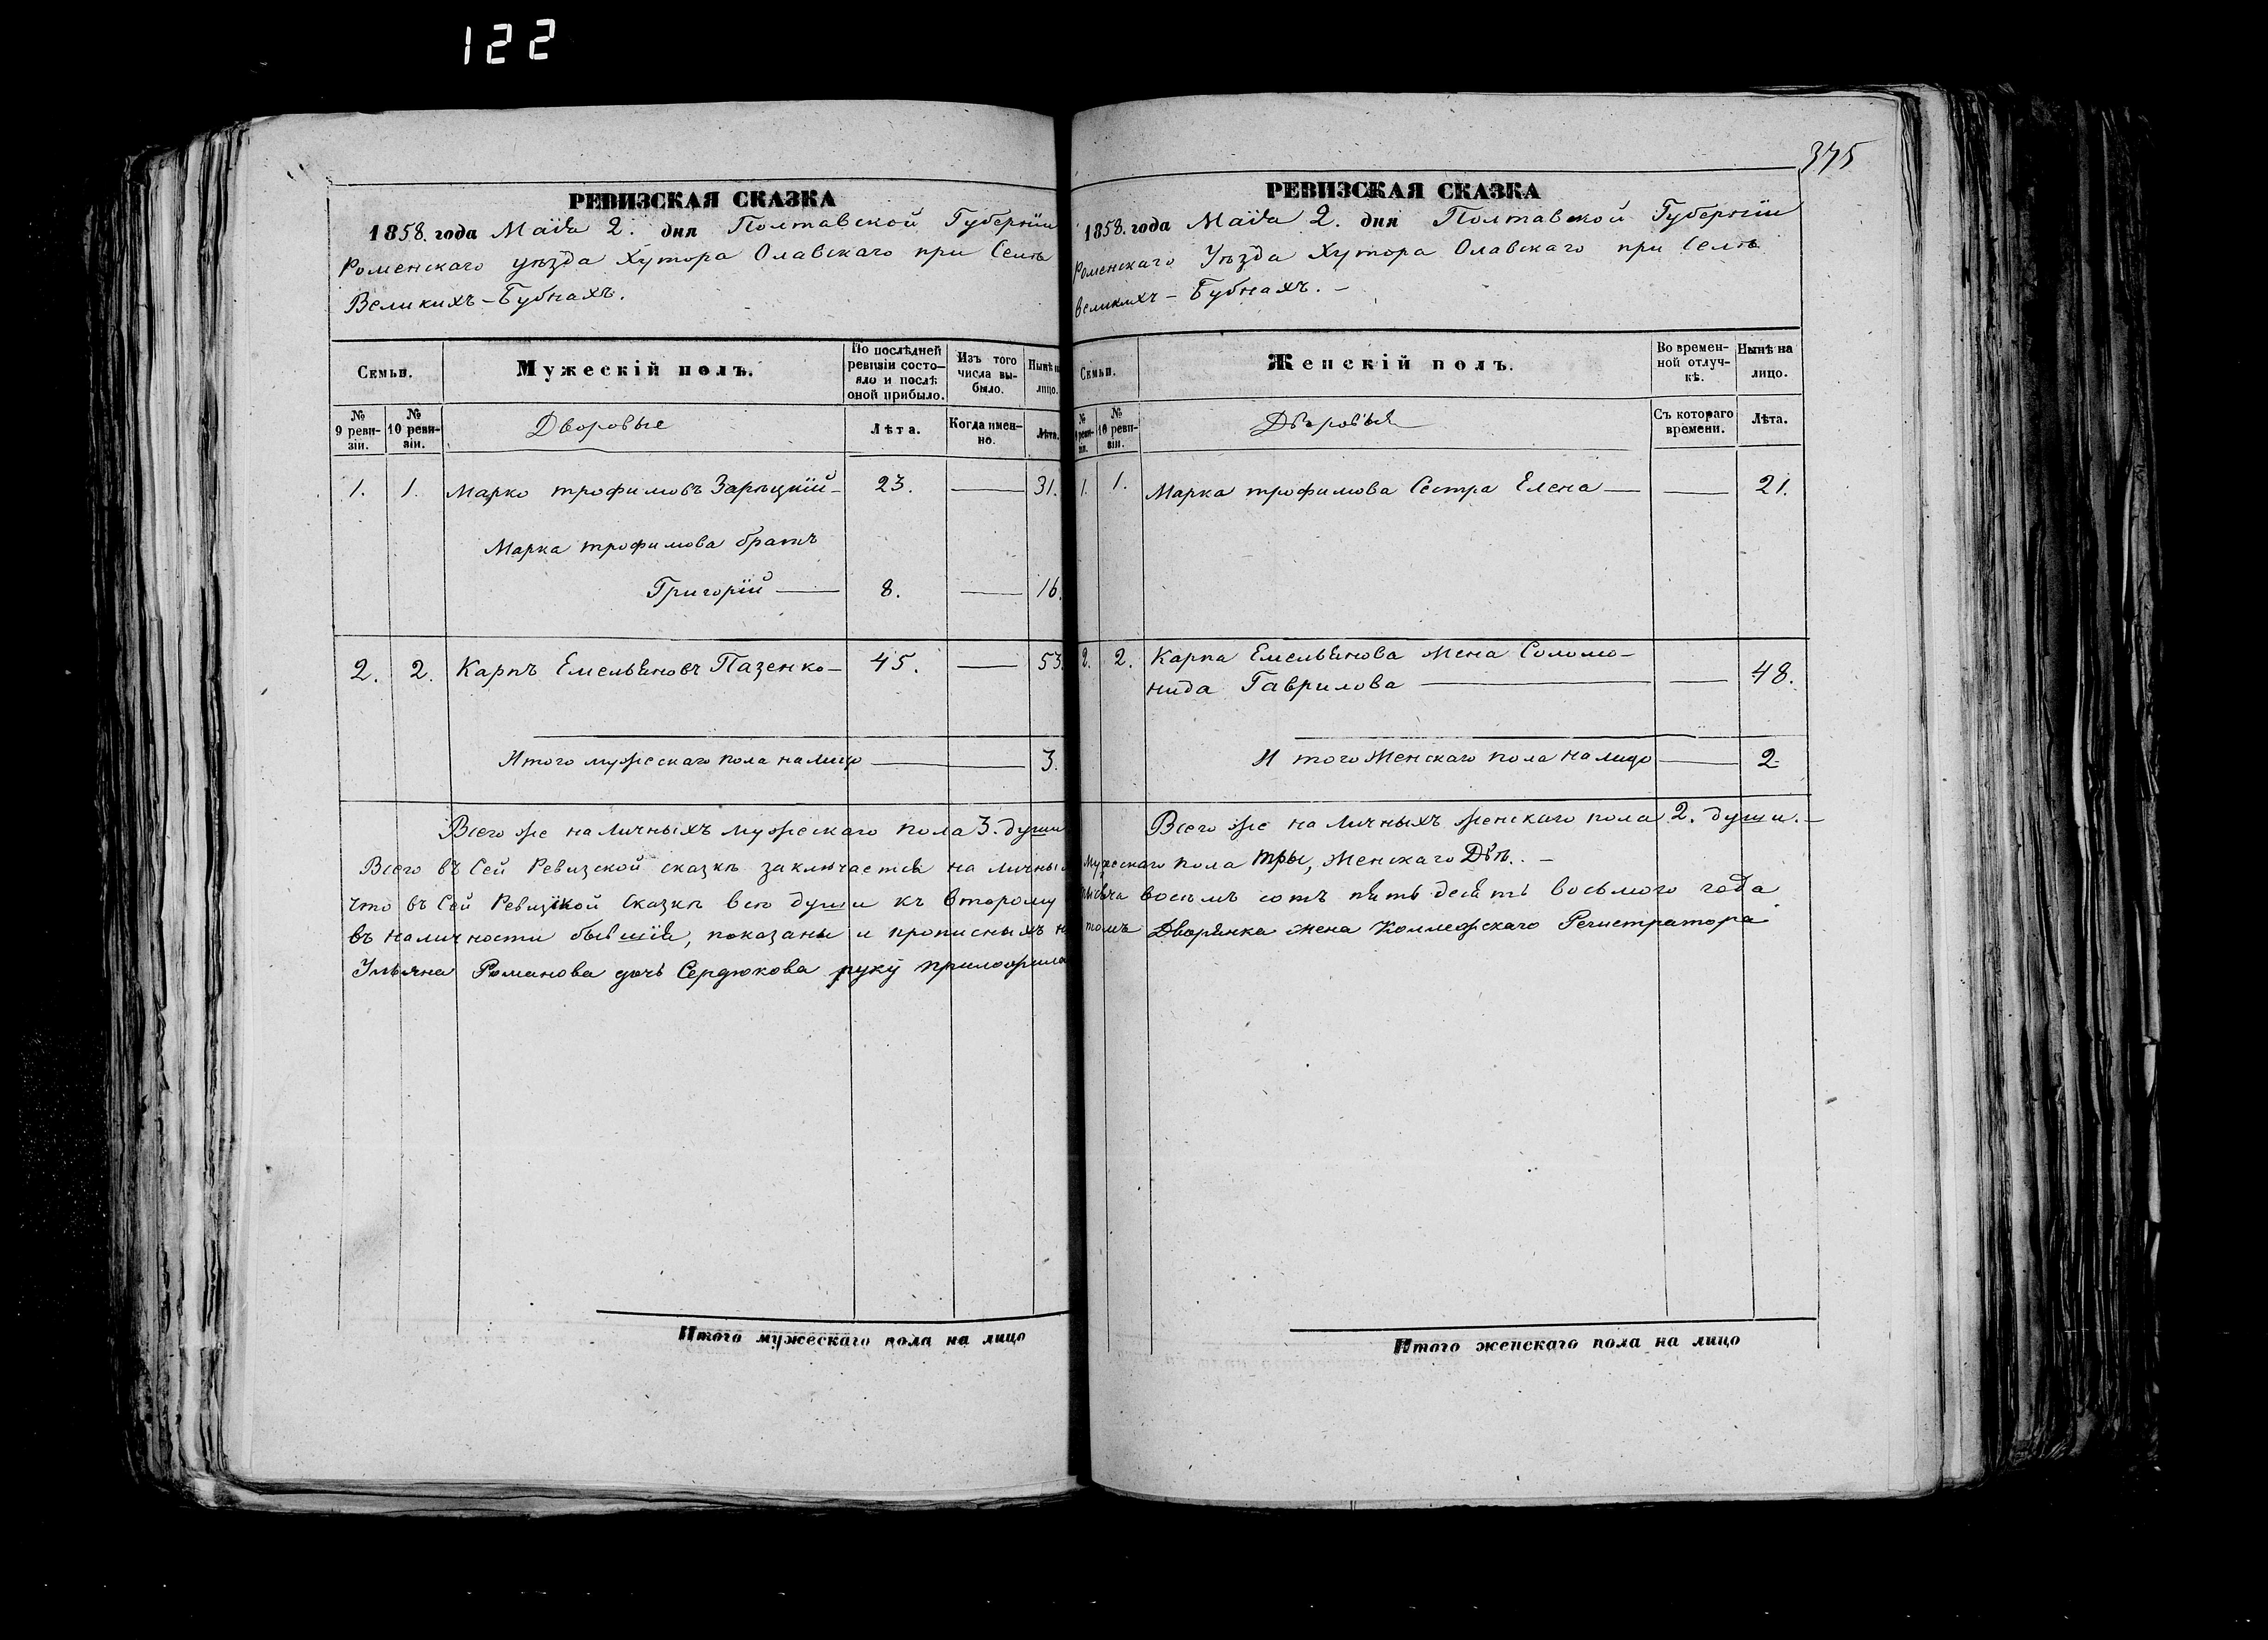 122
375
РЕВИЗСКАЯ СКАЗКА
1858. года Маія 2. дня Полтавской Губерніи
Роменскаго уѣзда Хутора Олавскаго при Селѣ
Великихъ-Бубнахъ.
Семьи.
Мужескій полъ.
По послѣдней ревизіи состояло и послѣ оной прибыло.
Изъ того числа выбыло.
Нынѣ на лицо.
№ 9 ревизіи.
№ 10 ревизіи.
Дворовые
Лѣта.
Когда именно.
Лѣта.
1. 1. Марко трофимовъ Зарѣцкій - 23. — 31.
Марка трофимова братъ
Григорій — 8. — 16.
2. 2. Карпъ Емельяновъ Пазенко - 45. — 53.
Итого мужескаго пола налицо — 3.
Всего же наличныхъ мужескаго пола 3. души
Всего въ Сей Ревизской сказкѣ заключается на личных
что въ Сей Ревизкой Сказкѣ всѣ души къ второму
въ наличности бывшія, показаны и прописныхъ н
Ульяна Романова дочь Сердюкова руку приложила
Итого мужескаго пола на лицо
РЕВИЗСКАЯ СКАЗКА
1858. года Маія 2. дня Полтавской Губерніи
Роменскаго Уѣзда Хутора Олавскаго при Селѣ
Великихъ-Бубнахъ. -
Семьи.
Женскій полъ.
Во временной отлучкѣ.
Нынѣ на лицо.
№ 9 ревизіи.
№ 10 ревизіи.
Дворовыя
Съ котораго времени.
Лѣта.
1. 1. Марка трофимова Сестра Елена — — 21.
2. 2. Карпа Емельянова жена Соломо-
нида Гаврилова — — 48.
Итого Женскаго пола налицо — 2.
Всего же наличныхъ женскаго пола 2. души. -
мужескаго пола тры, женскаго Двѣ. -
тысяча восемъ сотъ пять десять восьмого года
томъ Дворянка жена Коллежскаго Регистратора
Итого женскаго пола на лицо